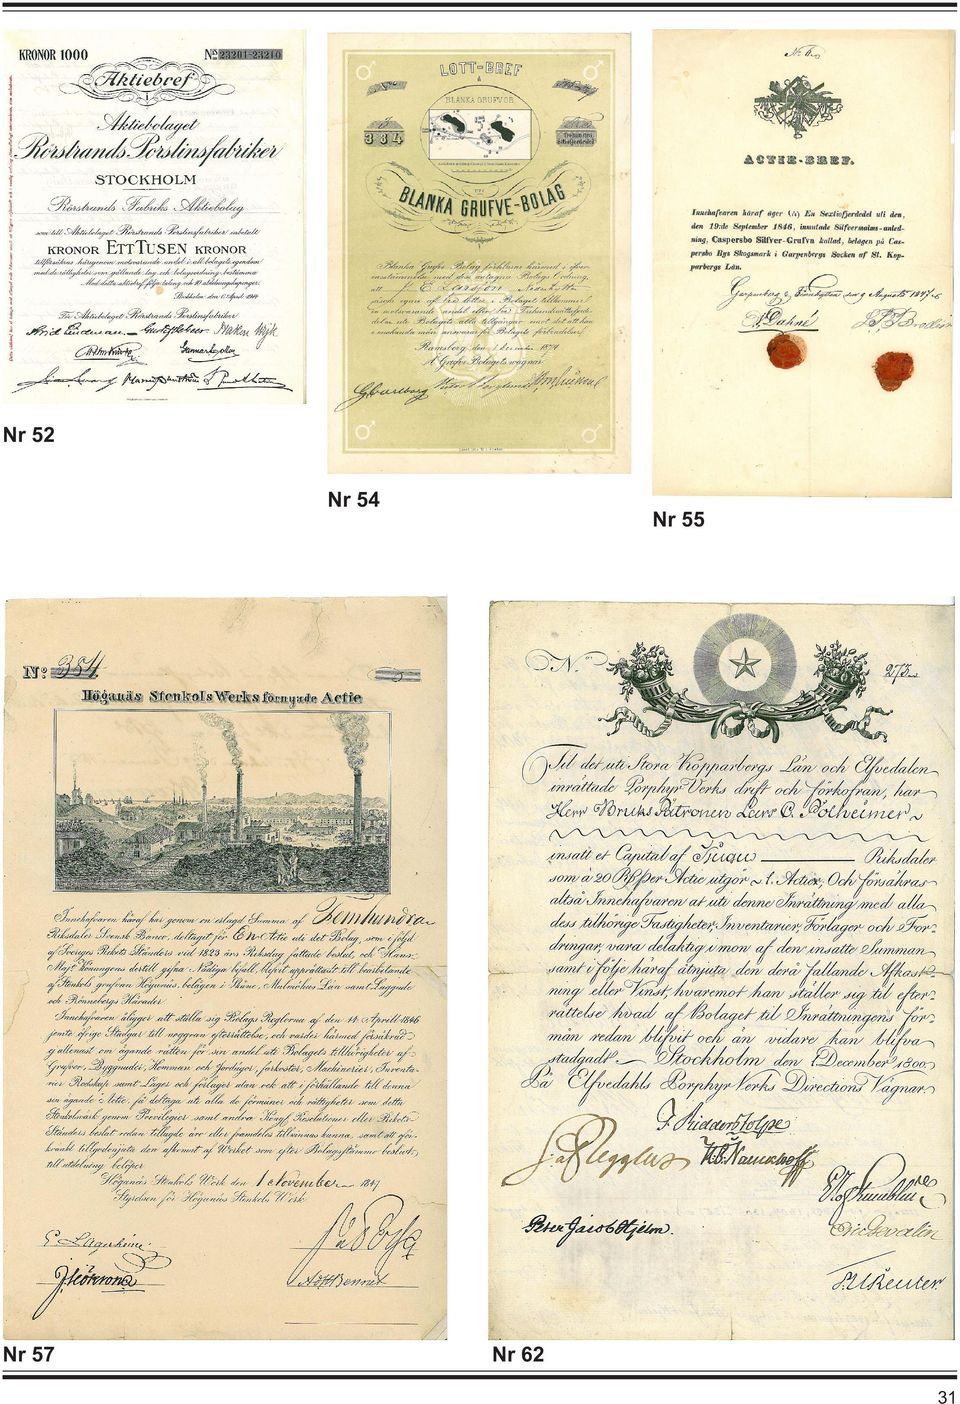 KRONOR 1000
No 23201-23210
Aktiebref
Aktiebolaget
Rörstrands Porslinsfabriker
STOCKHOLM
Rörstrands Fabriks Aktiebolag
som till Aktiebolaget Rörstrands Porslinsfabriker inbetalt
KRONOR ETTTUSEN KRONOR
tillförsäkras härigenom motsvarande andel i all bolagets egendom
med de rättigheter som gällande lag och bolagsordning bestämma
Med detta aktiebref följa talong och 10 utdelningskuponger.
Stockholm den 17 April 1914
För Aktiebolaget Rörstrands Porslinsfabriker
Nr 52
LOTT-BREF
Å
BLANKA GRUFVOR
384
UTI
BLANKA GRUFVE-BOLAG
Blanka Grufve-Bolag förklarar härmed i öfver-
ensstämmelse med den antagna Bolags Ordning,
att
Ramsberg den 1 December 1874
Å Grufve-Bolagets vägnar
Nr 54
No 6
ACTIE-BREF.
Innehafvaren häraf äger (1/64) En Sextiofjerdedel uti den,
den 19:de September 1846, inmutade Silfvermalms-anled-
ning, Caspersbo Silfver-Grufva kallad, belägen på Cas-
persbo Bys Skogsmark i Garpenbergs Socken af St. Kop-
parbergs Län.
Garpenberg den 9 Augusti 1847
Nr 55
No 384.
Höganäs StenkolsWerks förnyade Actie
Innehafvaren häraf har genom en erlagd Summa af Femhundra
Riksdaler Svensk Banco, deltagit för En Actie uti det Bolag, som i följd
af Sveriges Rikets Ständers vid 1823 års Riksdag fattade beslut, och Hans
Maj:t Konungens dertill gifna Nådiga bifall, blifvit upprättadt till bearbetande
af Stenkols grufvan Höganäs, belägen i Skåne, Malmöhus Län samt Luggude
och Rönnebergs Härader.
Innehafvaren åligger att ställa sig Bolags Reglorna af den 14 Aprill 1846
jemte öfrige Stadgar till noggran efterrättelse, och varder härmed försäkrad
Grufvor, Byggnader, Hemman och Jordagor, farkoster, Machinerier, Inventa-
rier Redskap samt Lager och förlager
sin ägande Actie, få deltaga uti alla de förmåner och rättigheter som detta
Stenkolswärk genom Privilegier samt andra Kongl. Resolutioner eller Rikets
Ständers beslut redan tillagde äro eller framdeles tillämnas kunna, samt att
till utdelning belöper.
Höganäs Stenkols Werk den 1 November 1847
Styrelsen för Höganäs Stenkols Werk.
Nr 57
No 273
Til det uti Stora Kopparbergs Län och Elfvedalen
inrättade Porphyr Verks drift och förkofran, har
Herr Bruks Patronen Lars C. Pölheimer
insatt et Capital af Tjugu Riksdaler
som à 20 Rd per Actie utgör 1. Actier, Och försäkras
altså Innehafvaren at uti denne Inrättning med alla
dess tilhörige Fastigheter, Inventarier, Förlager och For-
dringar, vara delaktig i mon af den insatte Summan
samt i följe häraf åtnjuta den derå fallande Afkast-
ning eller Vinst, hvaremot han ställer sig til efter-
rättelse hvad af Bolaget til Inrättningens för-
mån redan blifvit och än vidare kan blifva
stadgadt. Stockholm den 1 December 1800
På Elfvedahls Porphyr Verks Directions Vägnar
Peter Jacob Hjelm.
Nr 62
31